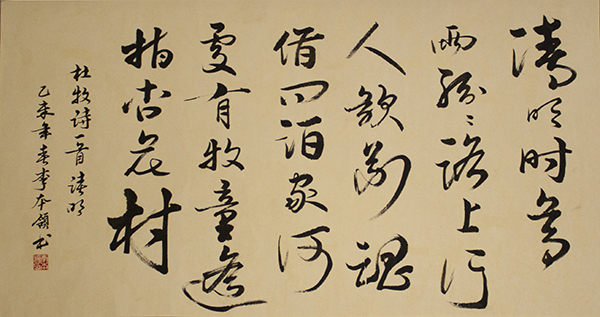 清明时节
雨纷纷路上行
人欲断魂
借问酒家何
处有牧童遥
指杏花村
杜牧诗一首清明
乙未年春李本领书